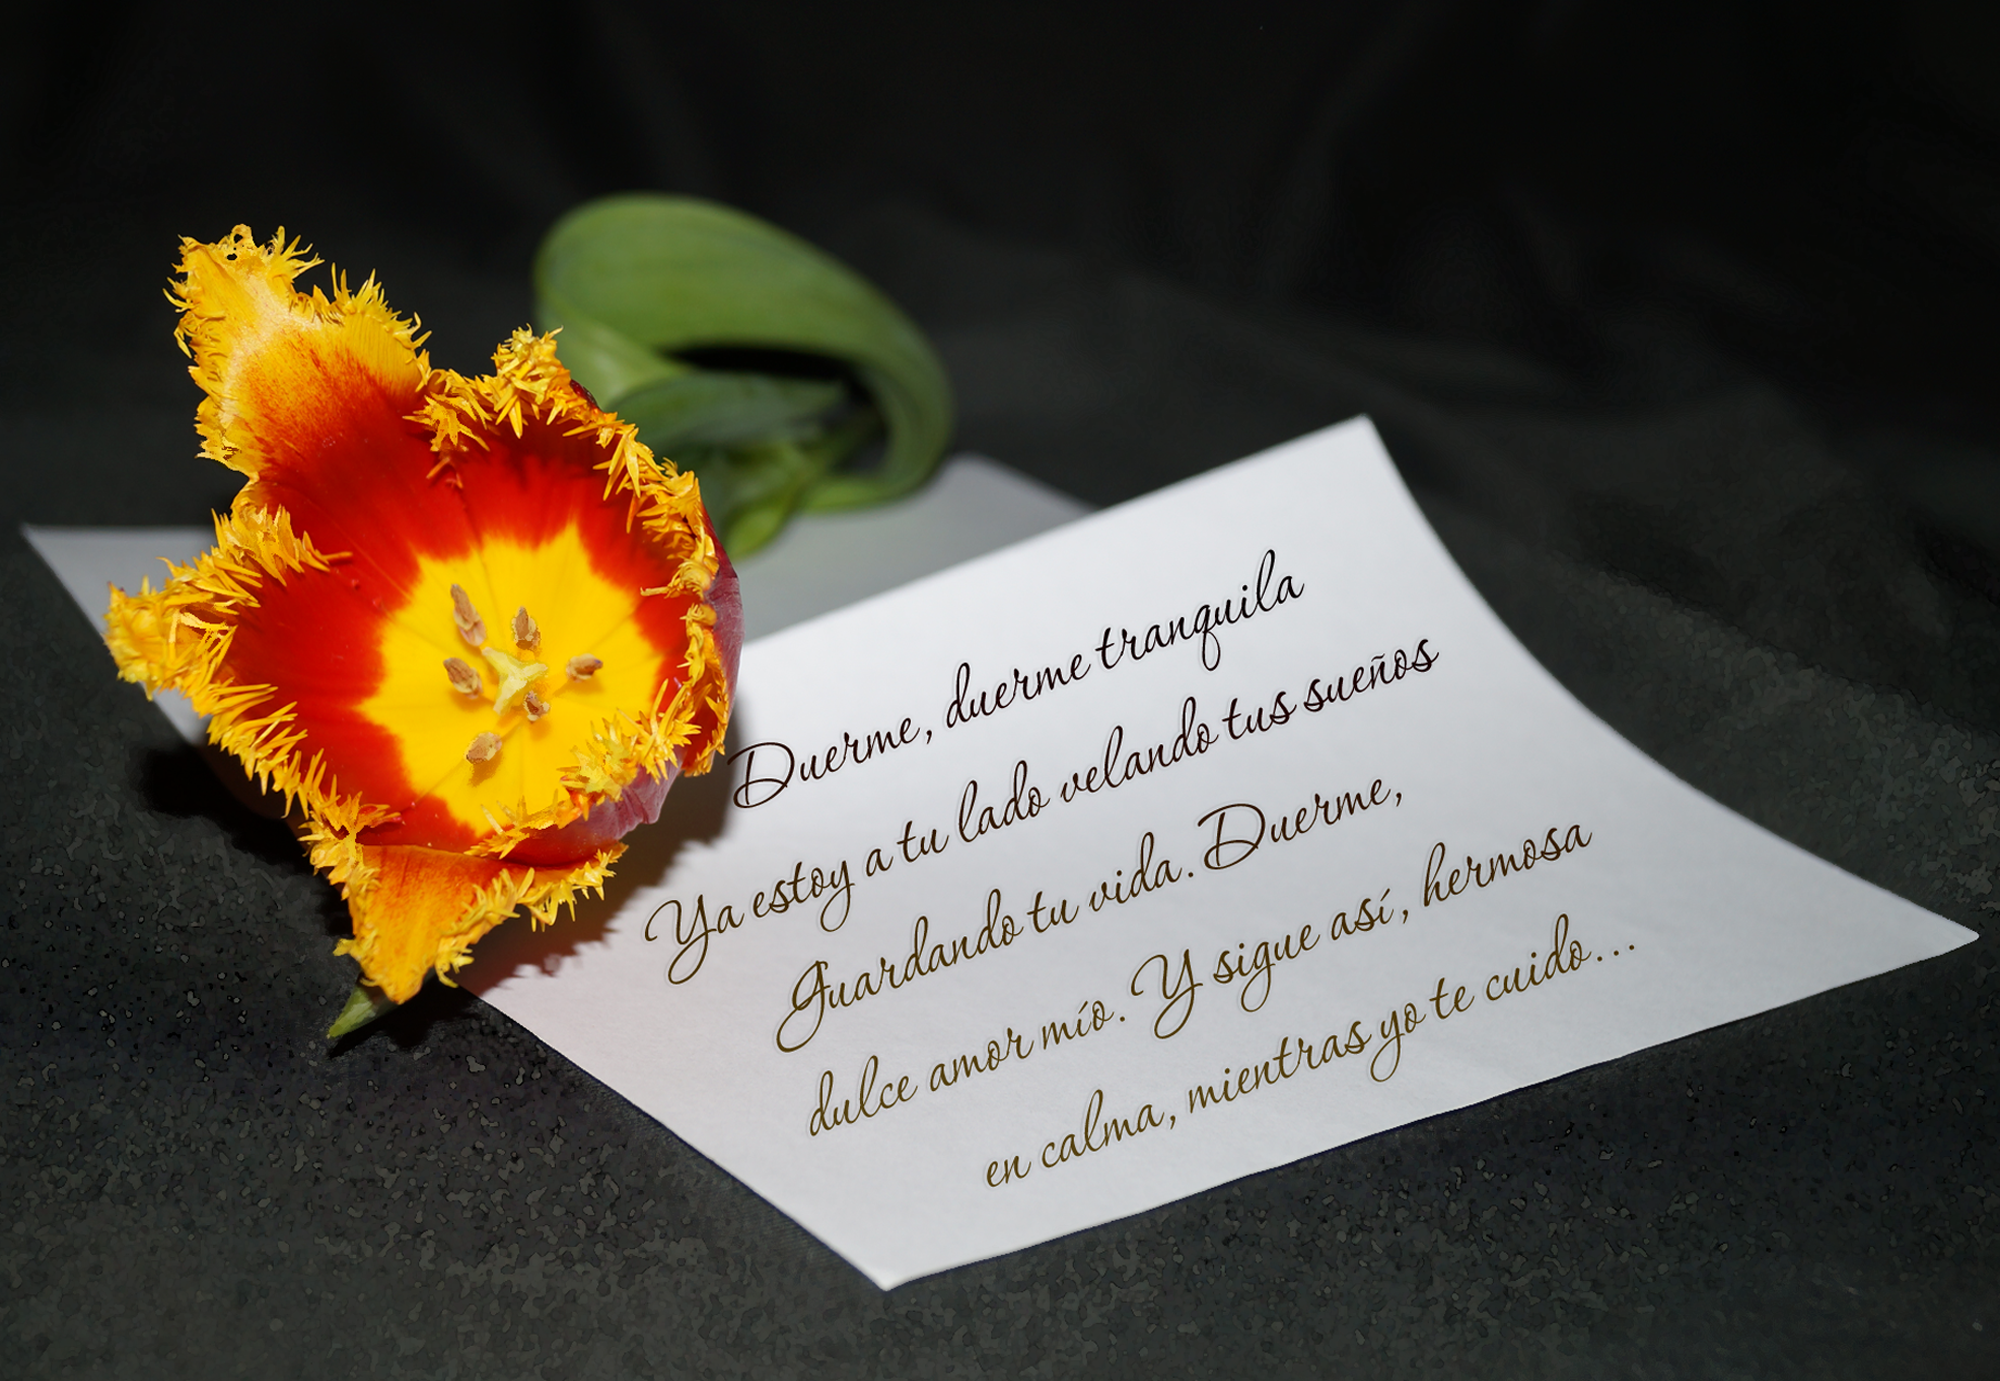 Duerme, duerme tranquila
Ya estoy a tu lado velando tus sueños
Guardando tu vida. Duerme,
dulce amor mío. Y sigue así, hermosa
en calma, mientras yo te cuido...